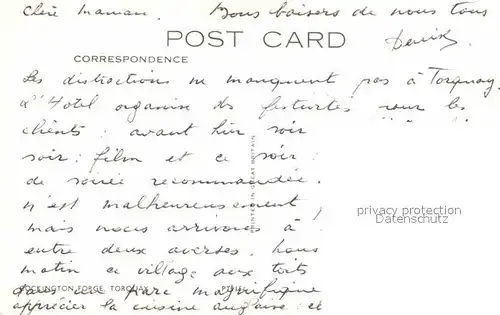 Chère Maman. Bons baisers de nous tous
POST CARD
Denise
CORRESPONDENCE
Les distractions ne manquent pas à Torquay.
L'Hotel organise des festivités pour les
clients : avant hier soir
soir : film et ce soir :
de soirée recommandée.
n'est malheureusement
mais nous arrivons à
entre deux averses.
matin ce village aux toits
dans un parc magnifique
apprécier la cuisine anglaise : et
COCKINGTON FORGE, TORQUAY
PRINTED IN GREAT BRITAIN
privacy protection
Datenschutz